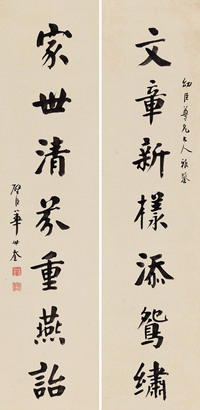 文章新樣添鴛繡
幼臣尊兄大人雅鑒
家世清芬重燕詒
華世奎